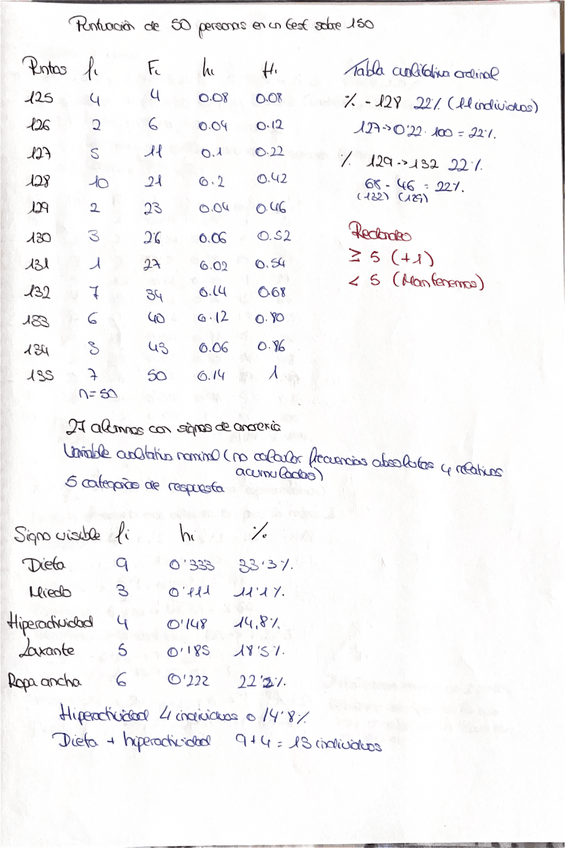 Puntuación de 50 personas en un test sobre 150
Puntos fi Fi hi Hi
125 4 4 0.08 0.08
126 2 6 0.04 0.12
127 5 11 0.1 0.22
128 10 21 0.2 0.42
129 2 23 0.04 0.46
130 3 26 0.06 0.52
131 1 27 0.02 0.54
132 7 34 0.14 0.68
133 6 40 0.12 0.80
134 3 43 0.06 0.86
135 7 50 0.14 1
n=50
Tabla cualitativa ordinal
% - 128 22% (11 individuos)
127→0'22·100 = 22%
% 129→132 22%
68 - 46 = 22%
(132) (129)
Redondeo
≥ 5 (+1)
< 5 (Mantenemos)
27 alumnos con signos de anorexia
Variable cualitativa nominal (no calcular frecuencias absolutas y relativas
acumuladas)
5 categorías de respuesta
Signo visible fi hi %
Dieta 9 0'333 33'3%
Miedo 3 0'111 11'1%
Hiperactividad 4 0'148 14,8%
Laxante 5 0'185 18'5%
Ropa ancha 6 0'222 22'2%
Hiperactividad 4 individuos o 14'8%
Dieta + hiperactividad 9+4 = 13 individuos